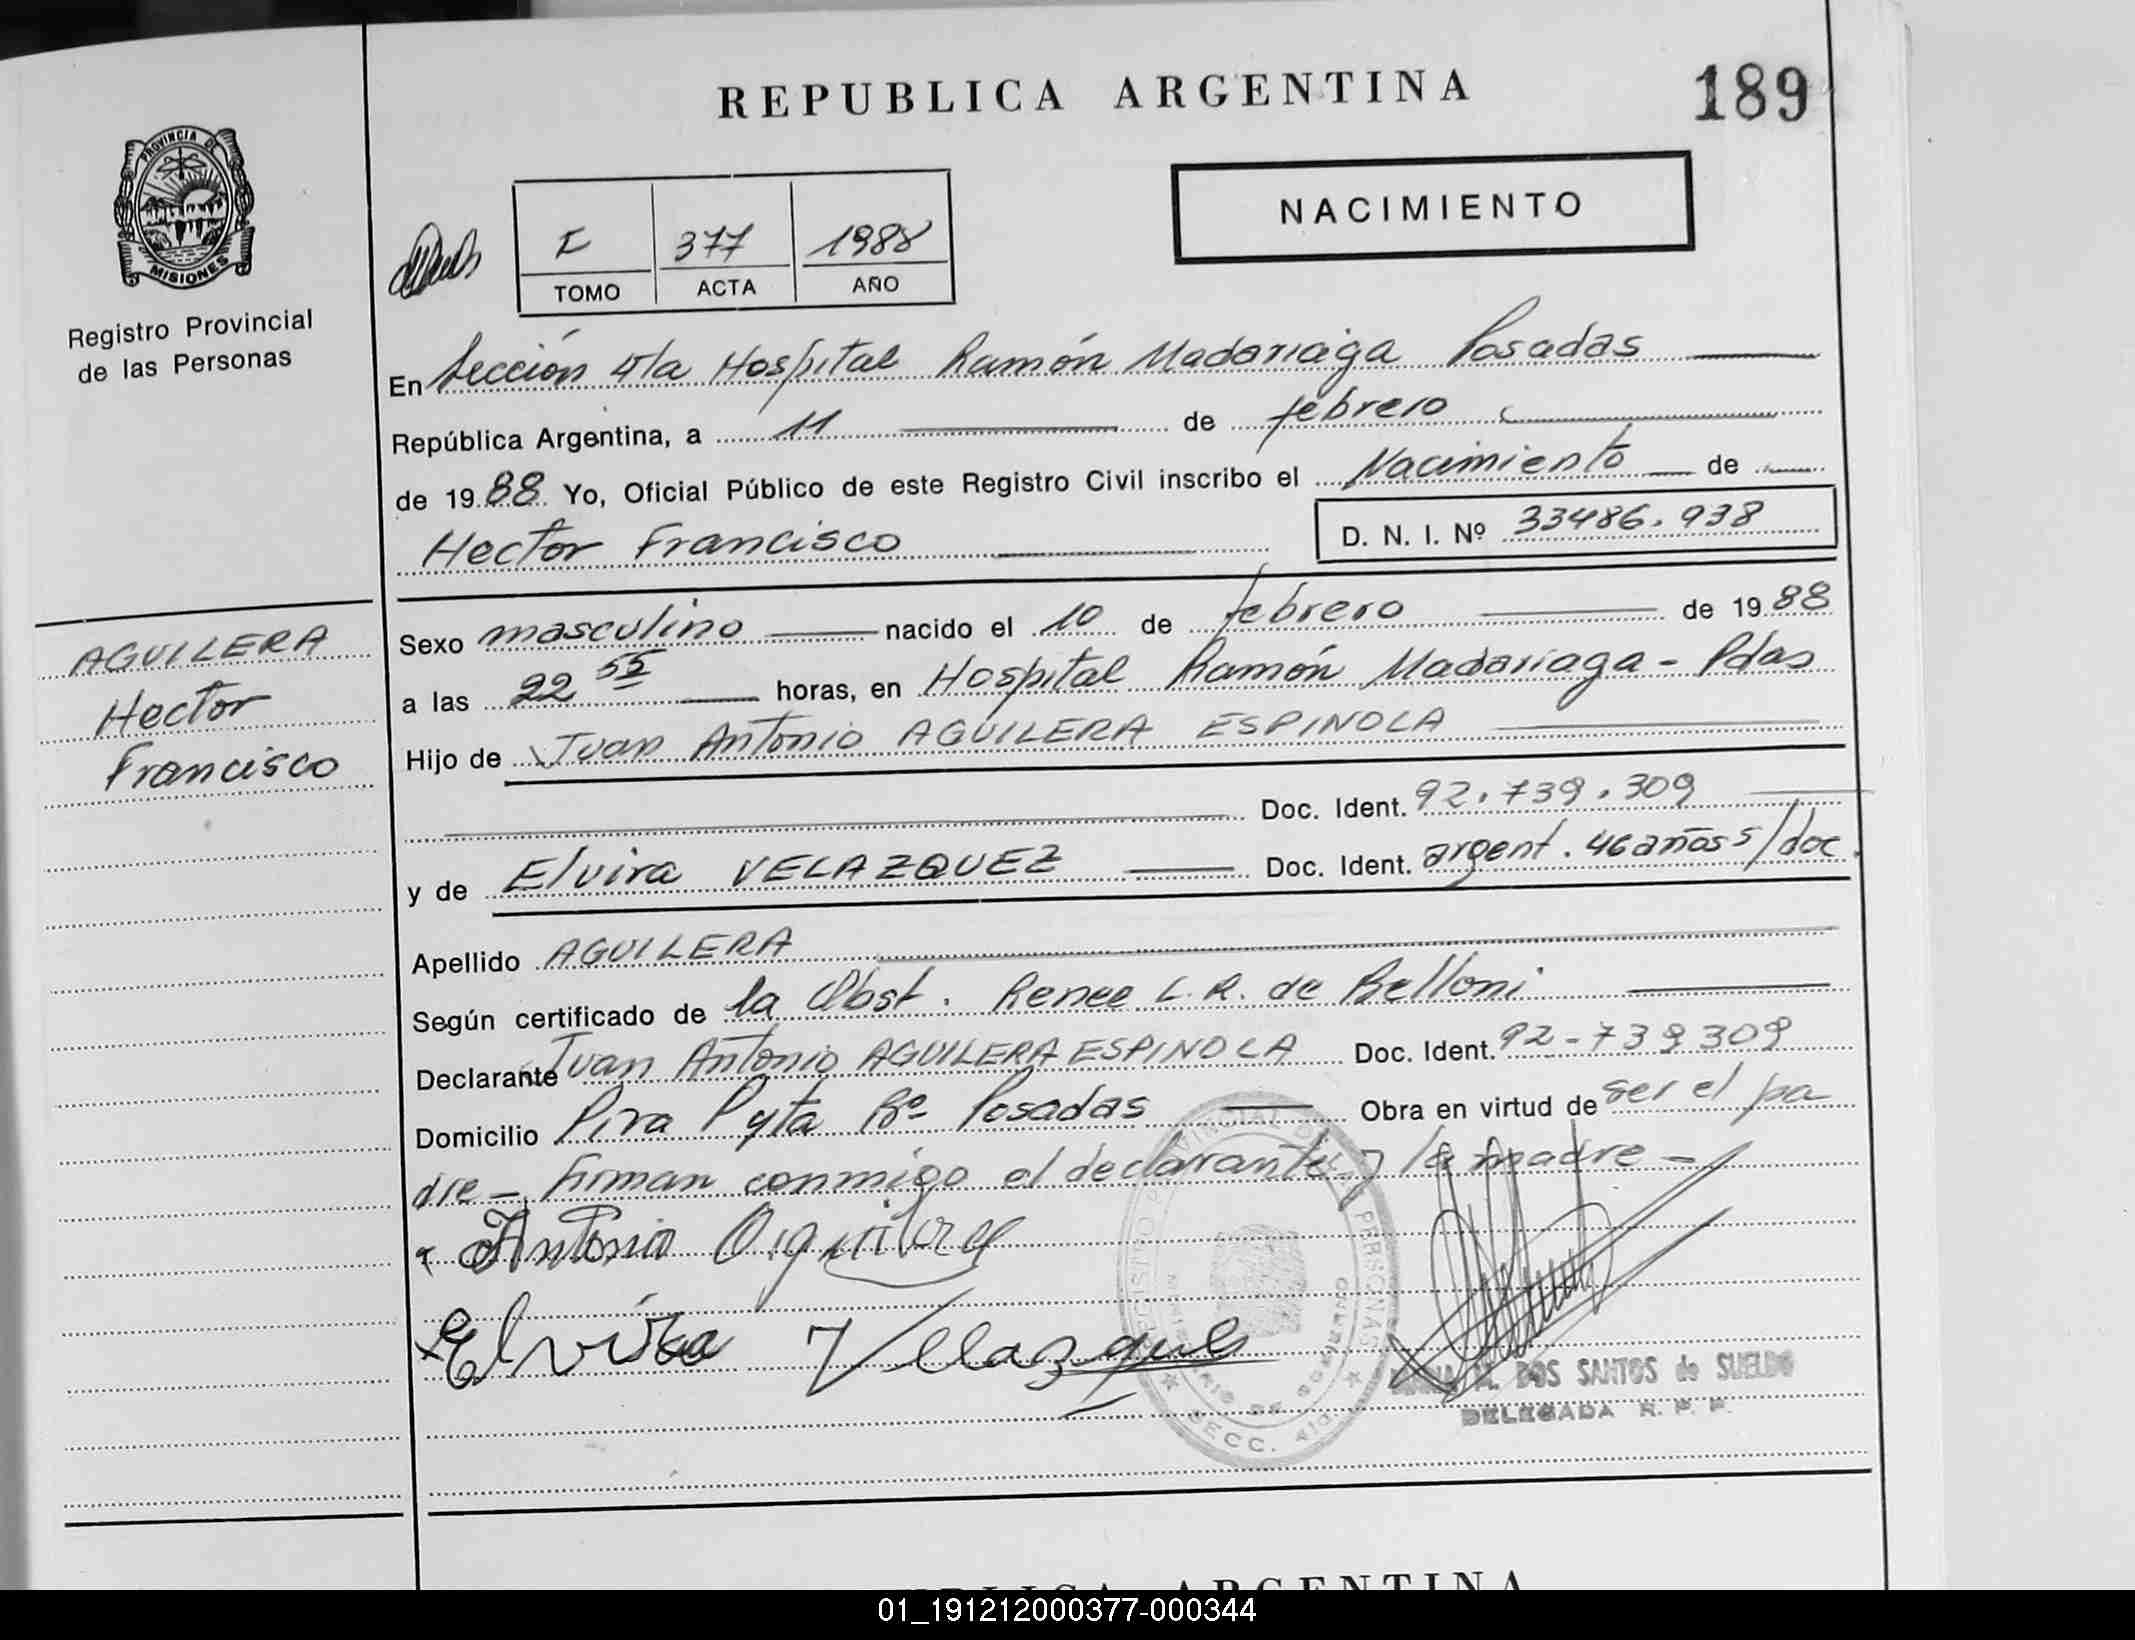 REPUBLICA ARGENTINA
189
PROVINCIA DE
MISIONES
Registro Provincial
de las Personas
I 377 1988
TOMO ACTA AÑO
NACIMIENTO
En Sección 4/a Hospital Ramón Madariaga Posadas
República Argentina, a 11 de febrero
de 1988 Yo, Oficial Público de este Registro Civil inscribo el Nacimiento de
Hector Francisco
D. N. I. Nº 33486.938
AGUILERA
Hector
Francisco
Sexo masculino nacido el 10 de febrero de 1988
a las 22 55 horas, en Hospital Ramón Madariaga - Pdas
Hijo de Juan Antonio AGUILERA ESPINOLA
Doc. Ident. 92.739.309
y de Elvira VELAZQUEZ Doc. Ident. argent. 46 años s/doc.
Apellido AGUILERA
Según certificado de la Obst. Renee L.R. de Belloni
Declarante Juan Antonio AGUILERA ESPINOLA Doc. Ident. 92-739309
Domicilio Pira Pyta Bº Posadas Obra en virtud de ser el pa
dre - Firman conmigo el declarante y la madre -
Antonio Aguilera
Elvira Velazque
DOS SANTOS de SUELDO
DELEGADA R. P. P.
01_191212000377-000344